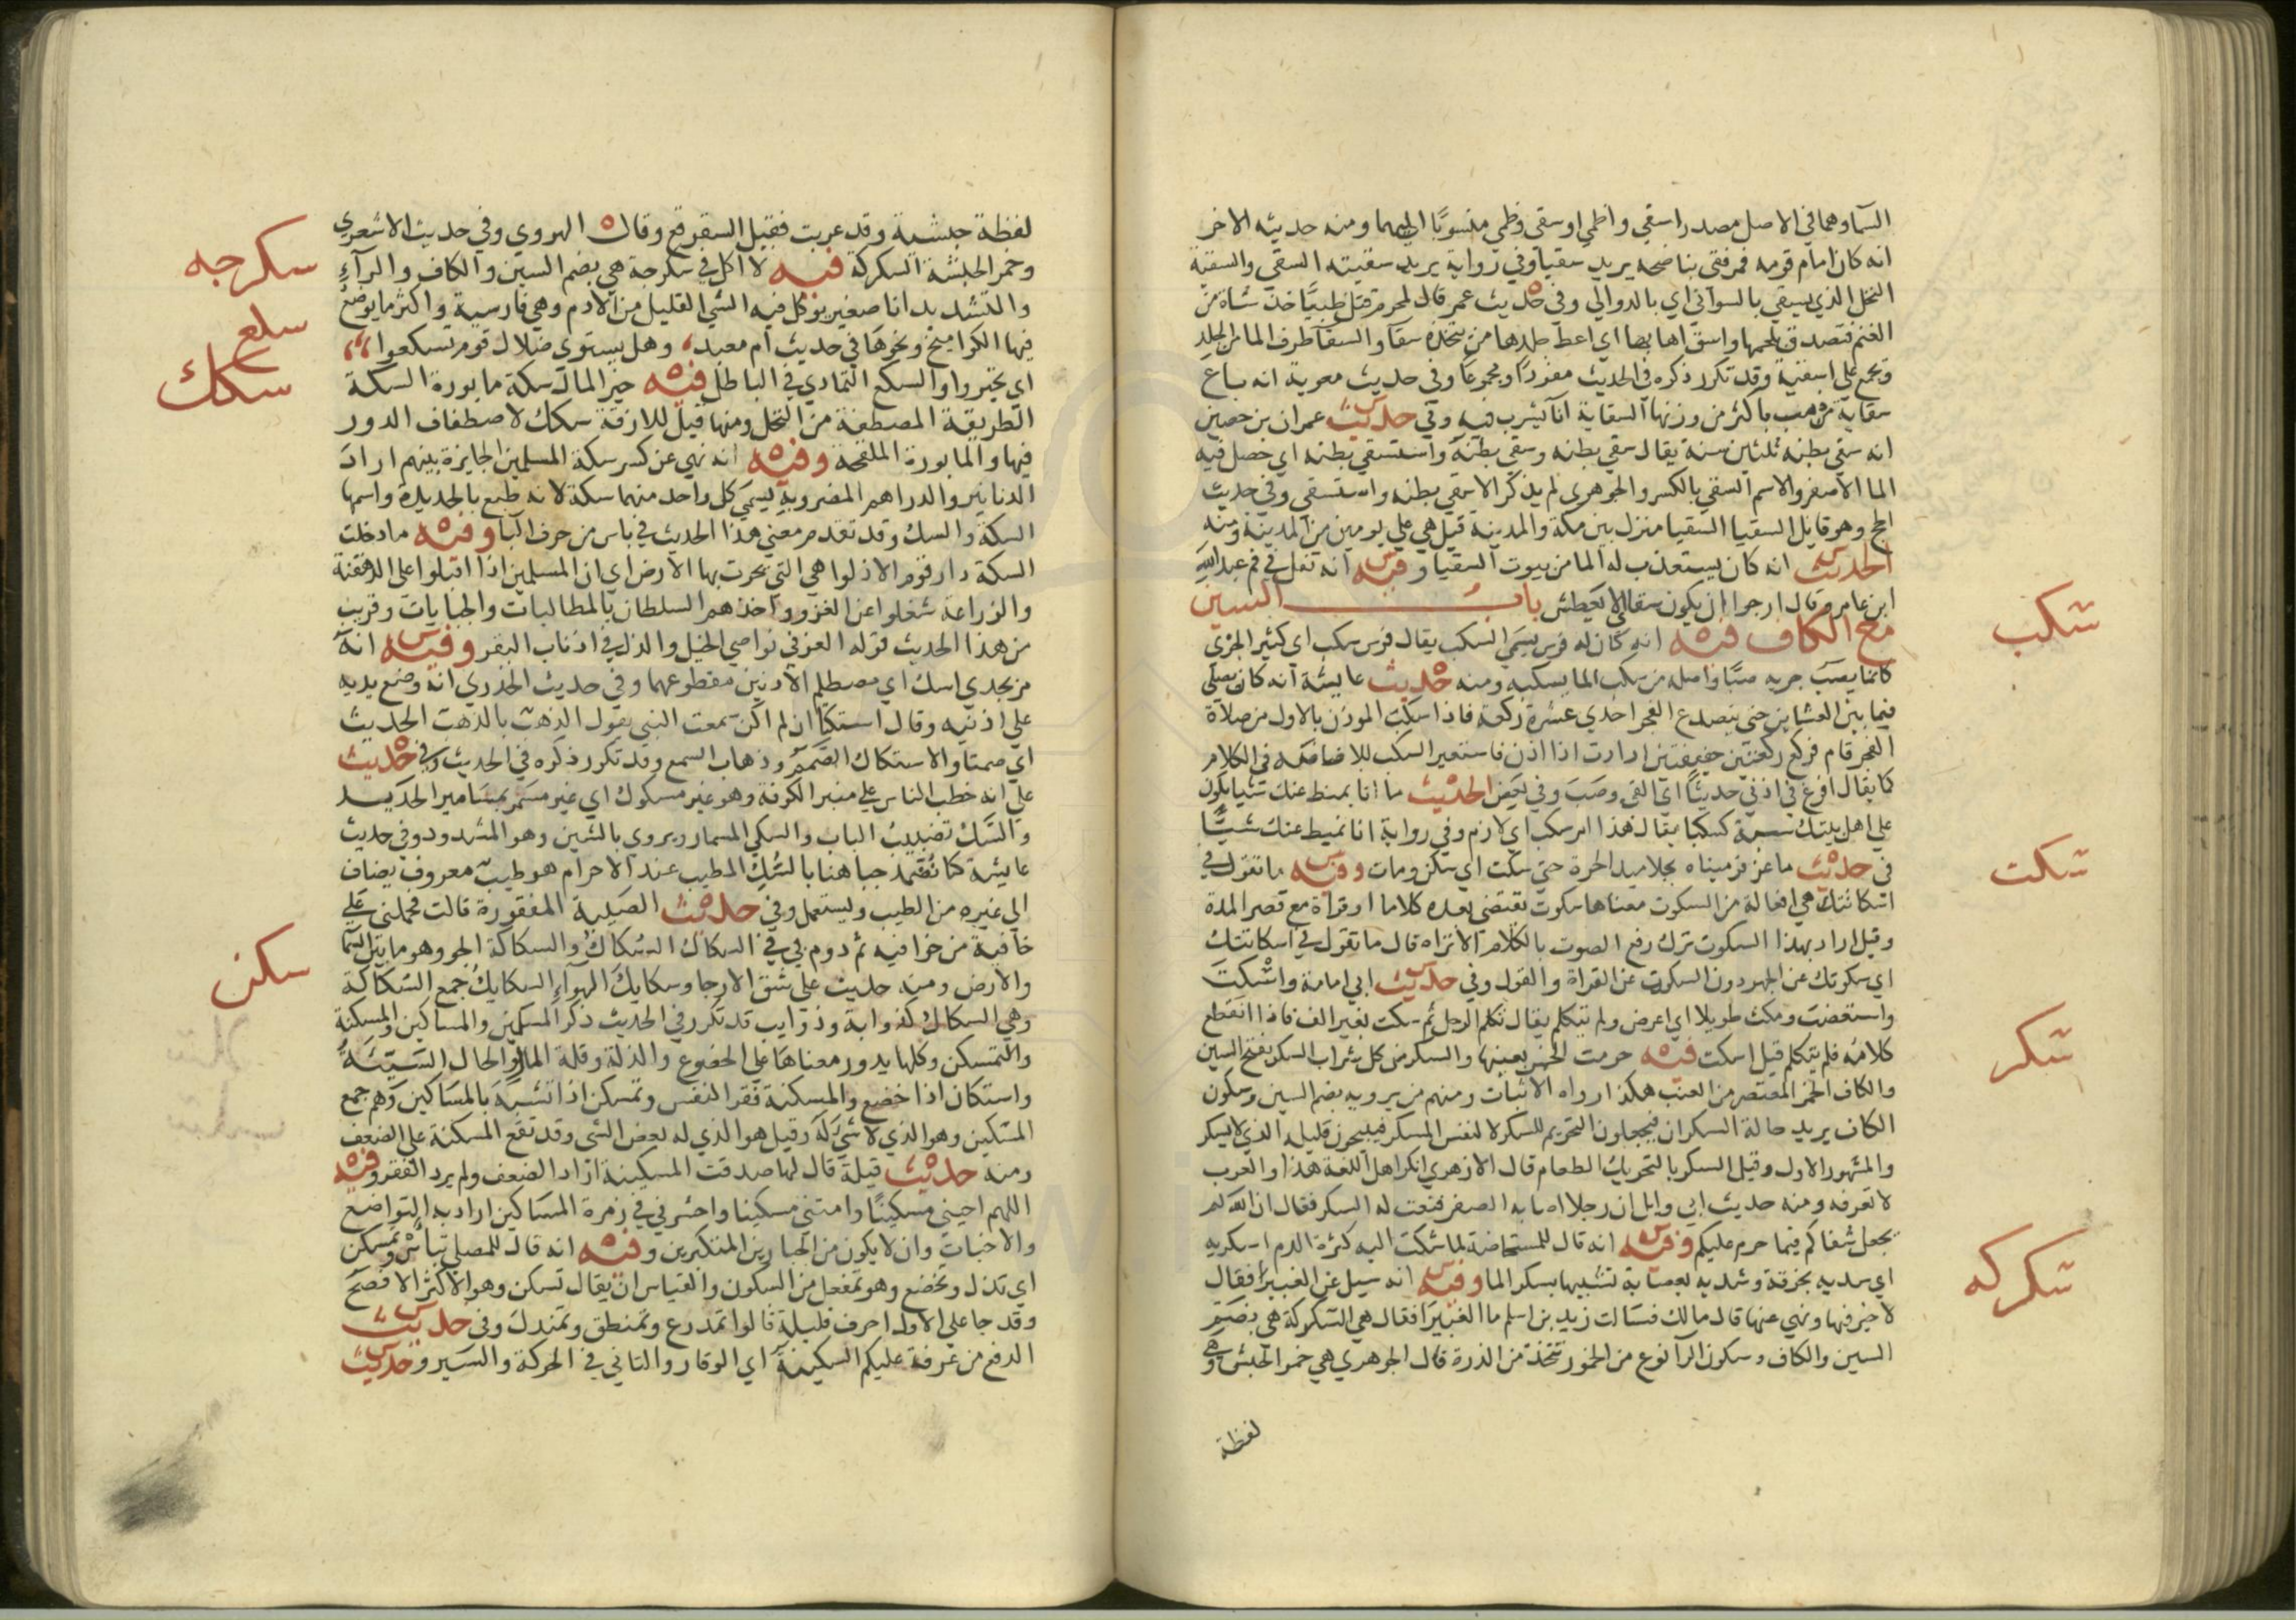 السما وهما في الاصل مصدر اسقي واظمي او سقي وظمي منسوبًا اليهما ومنه حديثه الاخر
انه كان امام قومه فمر فتي بناضحه يريد سقيا وفي رواية يريد سقيته السقي والسقية
النخل الذي يسقي بالسواني اي بالدوالي وفي حديث عمر قال لمحرم قتل ظبيًا خذ شاة من
الغنم فتصدق بلحمها واسق اهابها اي اعط جلدها من يتخذه سقآ والسقآ ظرف الما من الجلد
ويجمع علي اسقية وقد تكرر ذكره في الحديث مفردًا ومجموعًا وفي حديث معوية انه باع
سقاية من ذهب باكثر من وزنها السقاية انآ يشرب فيه وفي حديث عمران بن حصين
انه سقي بطنه ثلثين سنة يقال سقي بطنه وسقي بطنه واستسقي بطنه اي حصل فيه
الما الاصفر والاسم السقي بالكسر والجوهري لم يذكر الا سقي بطنه واستسقي وفي حديث
الحج وهو قايل السقيا السقيا منزل بين مكة والمدينة قيل هي علي يومين من المدينة ومنه
الحديث انه كان يستعذب له الما من بيوت السقيا وفيه انه تفل في فم عبد الله
ابن عامر وقال ارجوا ان يكون سقا اي لا يعطش باب السين
مع الكاف فيه انه كان له فرس يسمي السكب يقال فرس سكب اي كثير الجري
كانما يصب جريه صبًا واصله من سكب الما يسكبه ومنه حديث عايشة انه كان يصلي
فيما بين العشاين حتي ينصدع الفجر احدي عشرة ركعة فاذا سكب الموذن بالاول من صلاة
الفجر قام فركع ركعتين خفيفتين ارادت اذا اذن فاستعير السكب للافاضة في الكلام
كما يقال افرغ في اذني حديثًا اي القي وصب وفي بعض الحديث ما انا بمنط عنك شيا يكون
علي اهل بيتك سبة كسكبا يقال هذا امر سكب اي لازم وفي رواية انا نميط عنك شيئًا
في حديث ماعز فرميناه بجلاميد الحرة حتي سكت اي سكن ومات وفيه ما تقول في
اسكاتتك هي افعالة من السكوت معناها سكوت يقتضي بعده كلاما او قراة مع قصر المدة
وقيل اراد بهذا السكوت ترك رفع الصوت بالكلام الا تراه قال ما تقول في اسكاتتك
اي سكوتك عن الجهر دون السكوت عن القراة والقول وفي حديث ابي امامة واسكت
واستغضب ومكث طويلا اي اعرض ولم يتكلم يقال تكلم الرجل ثم سكت بغير الف فاذا انقطع
كلامه فلم يتكلم قيل اسكت فيه حرمت الخمر بعينها والسكر من كل شراب السكر بفتح السين
والكاف الخمر المعتصر من العنب هكذا رواه الاثبات ومنهم من يرويه بضم السين وسكون
الكاف يريد حالة السكران فيجعلون التحريم للسكر لا لنفس المسكر فيبيحون قليله الذي لا يسكر
والمشهور الاول وقيل السكر بالتحريك الطعام قال الازهري انكر اهل اللغة هذا والعرب
لا تعرفه ومنه حديث ابي وايل ان رجلا اصابه الصفر فنعت له السكر فقال ان الله لم
يجعل شفاكم فيما حرم عليكم وفيه انه قال للمستحاضة لما شكت اليه كثرة الدم اسكريه
اي سديه بخرقة وشديه بعصابة تشبيها بسكر الما وفيه انه سيل عن الغبيرا فقال
لا خير فيها ونهي عنها قال مالك فسالت زيد بن اسلم ما الغبيرا فقال هي السكركة هي بضم
السين والكاف وسكون الرآ نوع من الخمور تتخذ من الذرة قال الجوهري هي خمر الحبش وهي
لفظة
سكب
سكت
سكر
سكركه
لفظة حبشية وقد عربت فقيل السقرقع وقال الهروي وفي حديث الاشعري
وخمر الحبشة السكركة فيه لا اكل في سكرجة هي بضم السين والكاف والرآء
والتشديد انا صغير يوكل فيه الشي القليل من الادم وهي فارسية واكثر ما يوضع
فيها الكوامخ ونحوها في حديث ام معبد، وهل يستوي ضلال قوم تسكعوا،،
اي تحيروا والسكع التمادي في الباطل فيه خير المال سكة مابورة السكة
الطريقة المصطفة من النخل ومنها قيل للازقة سكك لاصطفاف الدور
فيها والمابورة الملقحة وفيه انه نهي عن كسر سكة المسلمين الجايزة بينهم اراد
الدنانير والدراهم المضروبة يسمي كل واحد منهما سكة لانه طبع بالحديدة واسمها
السكة والسك وقد تقدم معني هذا الحديث في باس من حرف البا وفيه ما دخلت
السكة دار قوم الا ذلوا هي التي تحرث بها الارض اي ان المسلمين اذا اقبلوا علي الدهقنة
والزراعة شغلوا عن الغزو واخذهم السلطان بالمطالبات والجبايات وقريب
من هذا الحديث قوله العز في نواصي الخيل والذل في اذناب البقر وفيه انه
مر بجدي اسك اي مصطلم الاذنين مقطوعهما وفي حديث الخدري انه وضع يديه
علي اذنيه وقال استكتا ان لم اكن سمعت النبي يقول الذهب بالذهب الحديث
اي صمتا والاستكاك الصمم وذهاب السمع وقد تكرر ذكره في الحديث وفي حديث
علي انه خطب الناس علي منبر الكوفة وهو غير مسكوك اي غير مسمر بمسامير الحديد
والسك تضبيب الباب والسكي المسمار ويروي بالشين وهو المشدود وفي حديث
عايشة كنا نضمد جباهنا بالسك المطيب عند الاحرام هو طيب معروف يضاف
الي غيره من الطيب ويستعمل وفي حديث الصبية المفقودة قالت فحملني علي
خافية من خوافيه ثم دوم بي في السكاك السكاك والسكاكة الجو وهو ما بين السما
والارض ومنه حديث علي شق الارجا وسكايك الهوآء السكايك جمع السكاكة
وهي السكاك كذوابة وذوايب قد تكرر في الحديث ذكر المسكين والمساكين والمسكنة
والتمسكن وكلها يدور معناها علي الخضوع والذلة وقلة المال والحال السيئة
واستكان اذا خضع والمسكنة فقر النفس وتمسكن اذا تشبه بالمساكين وهم جمع
المسكين وهو الذي لا شي له وقيل هو الذي له بعض الشي وقد تقع المسكنة علي الضعف
ومنه حديث قيلة قال لها صدقت المسكينة اراد الضعف ولم يرد الفقر وفيه
اللهم احيني مسكينًا وامتني مسكينا واحشرني في زمرة المساكين اراد به التواضع
والاخبات وان لا يكون من الجبارين المتكبرين وفيه انه قال للمصلي تباس وتمسكن
اي تذل وتخضع وهو تمفعل من السكون والقياس ان يقال تسكن وهو الاكثر الافصح
وقد جا علي الاول احرف قليلة قالوا تمدرع وتمنطق وتمندل وفي حديث
الدفع من عرفة عليكم السكينة اي الوقار والتاني في الحركة والسير وحديث
سكرجه
سلع
سكك
سكن